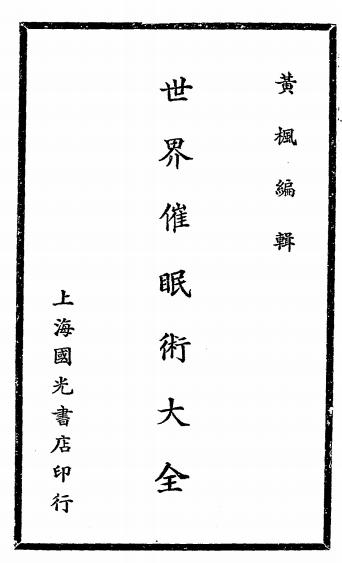 黃楓編輯
世界催眠術大全
上海國光書店印行